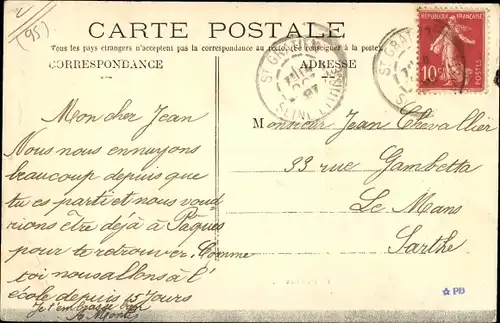 (95)
CARTE POSTALE
Tous les pays étrangers n'acceptent pas la correspondance au recto. (Se renseigner à la poste).
CORRESPONDANCE
ADRESSE
REPUBLIQUE FRANÇAISE
10c
POSTES
ST GRATIEN
Mon cher Jean
Nous nous ennuyons
beaucoup depuis que
tu es parti et nous voud
rions être déjà à Pâques
pour te retrouver. Comme
toi nous allons à l'
école depuis 15 jours
Je t'embrasse bien
Monsieur Jean Chevallier
33 rue Gambetta
Le Mans
Sarthe
☆ PD